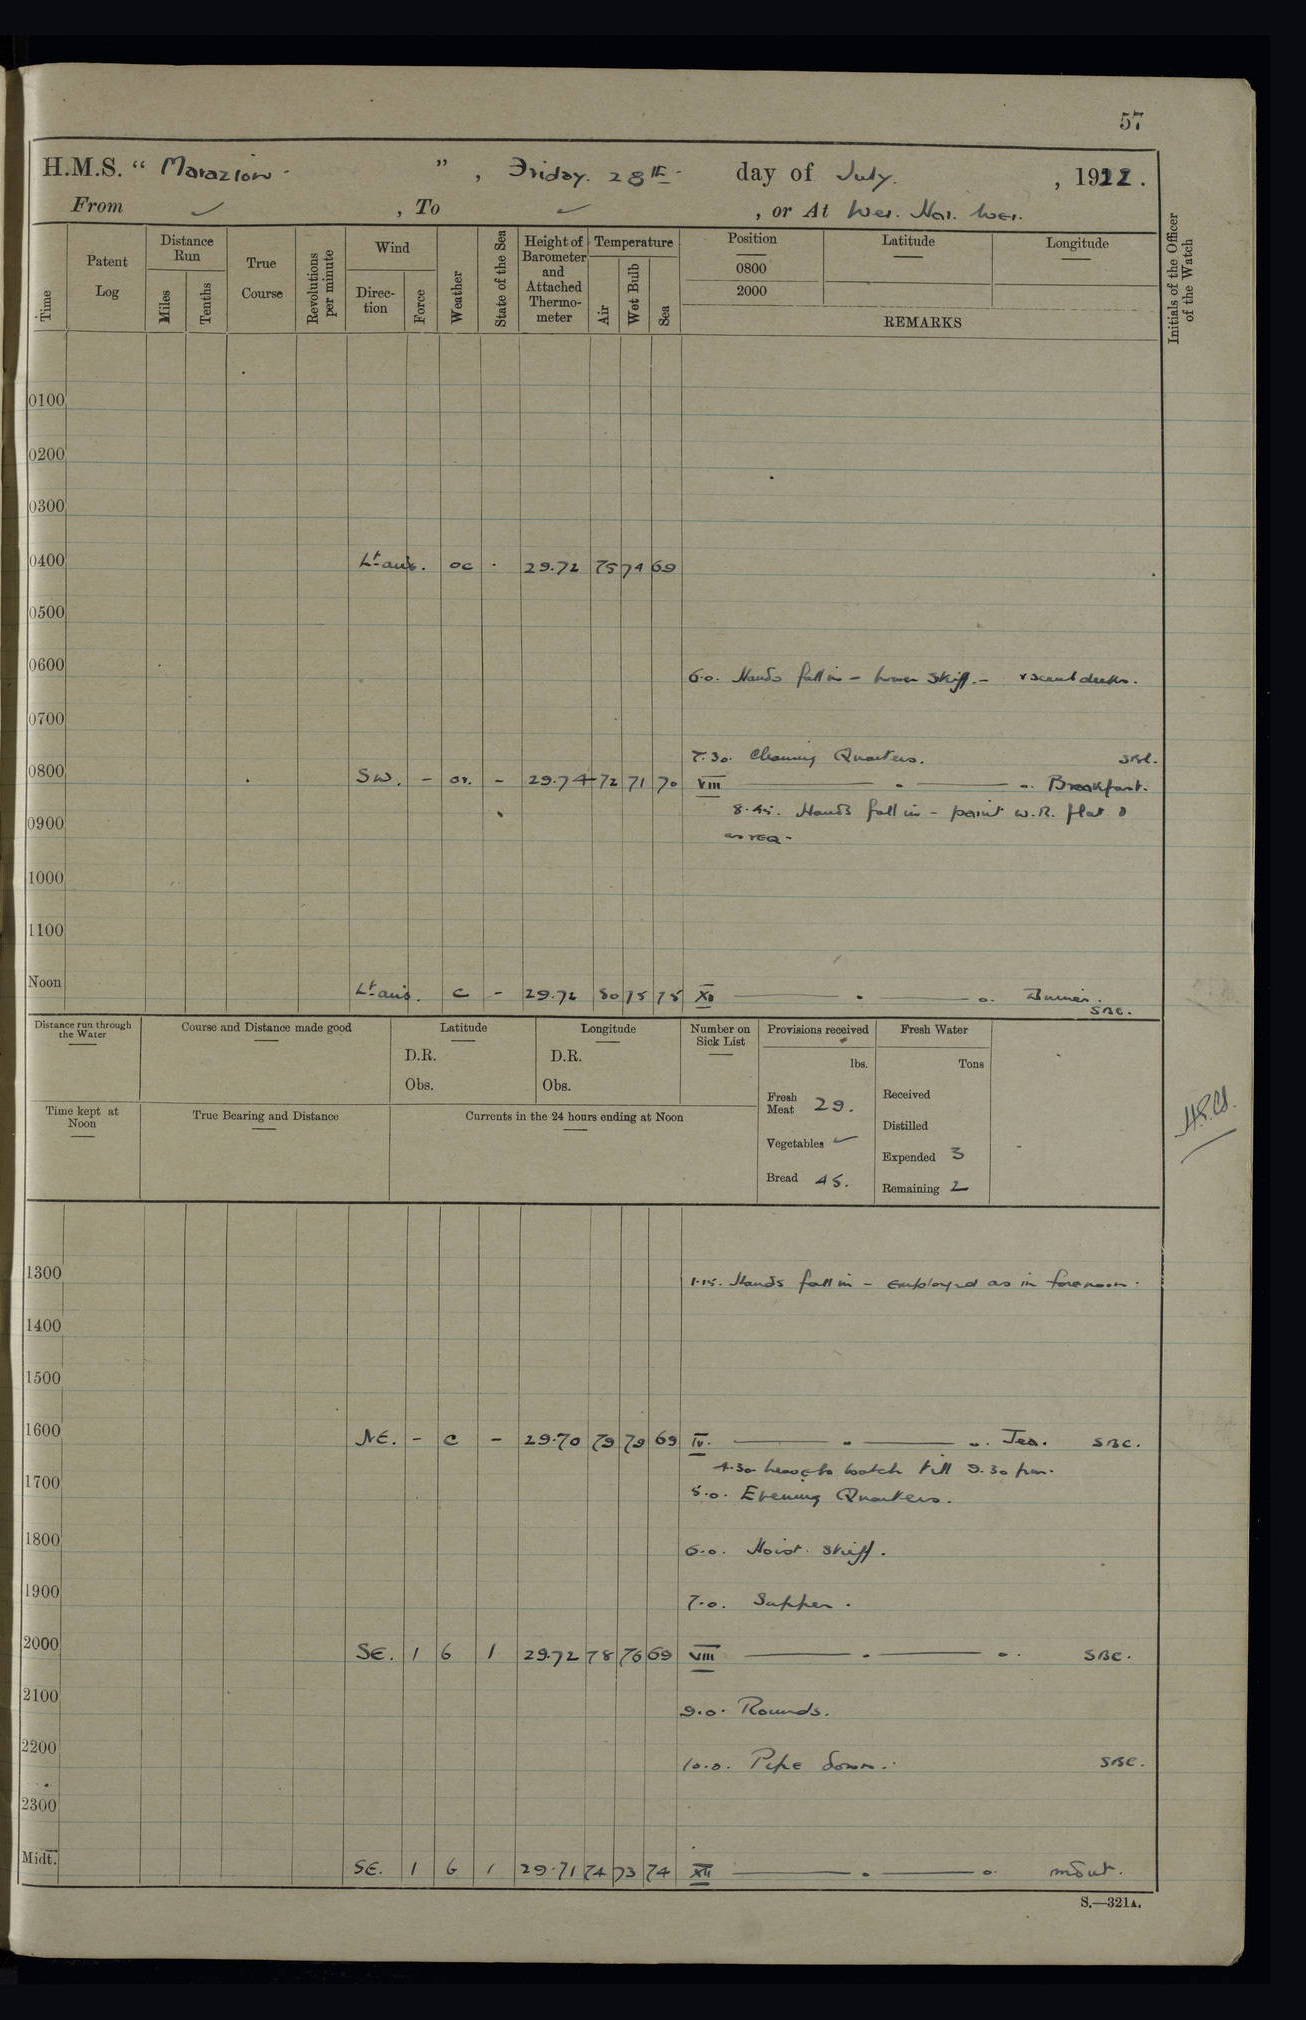 57
H.M.S. " Marazion. ", Friday. 28TH. day of July. , 1922.
From ✓ , To ✓ , or At Wei. Hai. Wei.
Time
Patent Log
Distance Run
Miles
Tenths
True Course
Revolutions per minute
Wind
Direction
Force
Weather
State of the Sea
Height of Barometer and Attached Thermometer
Temperature
Air
Wet Bulb
Sea
Position
0800
2000
Latitude
Longitude
REMARKS
Initials of the Officer of the Watch
0100
0200
0300
0400 Lt airs. oc - 29.72 75 74 69
0500
0600
6.0. Hands fall in - lower skiff. - & scrub decks.
0700
7.30. Cleaning Quarters.
0800 SW. - or. - 29.74 72 71 70 VIII Breakfast.
8.45. Hands fall in - paint W.R. flat &
as req -
0900
1000
1100
Noon Lt airs. c - 29.72 80 75 75 XII Dinner.
SBC.
Distance run through the Water
Course and Distance made good
Latitude
D.R.
Obs.
Longitude
D.R.
Obs.
Number on Sick List
Provisions received
lbs.
Fresh Meat 29.
Vegetables ✓
Bread 45.
Fresh Water
Tons
Received
Distilled
Expended 3
Remaining 2
Time kept at Noon
True Bearing and Distance
Currents in the 24 hours ending at Noon
1300
1.15. Hands fall in - employed as in forenoon.
1400
1500
1600 NE. - c - 29.70 79 79 69 IV. Tea. SBC.
4.30 leave to watch till 9.30 pm.
1700
5.0. Evening Quarters.
1800
6.0. Hoist skiff.
1900
7.0. Supper.
2000 SE. 1 b 1 29.72 78 76 69 VIII SBC.
2100
9.0. Rounds.
2200
10.0. Pipe down. SBC.
2300
Midt. SE. 1 b 1 29.71 74 73 74 XII
S.—321A.